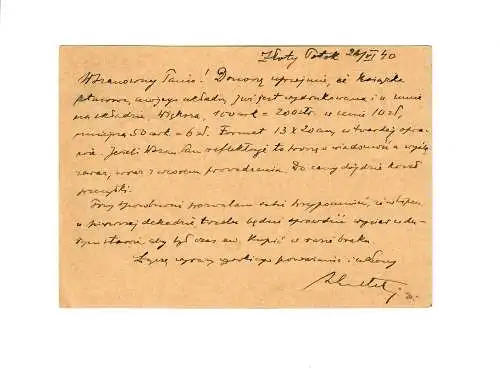 Złoty Potok 24/VI 40
W. Szanowny Panie! Donoszę uprzejmie, że książka
mojego układu, już jest wydrukowana i u mnie
na składzie. Większa, 100 = 200 w cenie 10 zł,
mniejsza 50 = 6 zł. Format 13 x 20 cm, w twardej opra-
wie. Jeżeli Pan reflektuje to proszę o wiadomość a wyślę
zaraz, wraz z Do ceny dojdzie koszt
przesyłki.
Przy sposobności pozwalam sobie przypomnieć, że
w pierwszej dekadzie trzeba będzie sprawdzić w du-
żym stawie, aby był czas kupić w razie braku.
Łączę wyrazy głębokiego poważania i ukłony